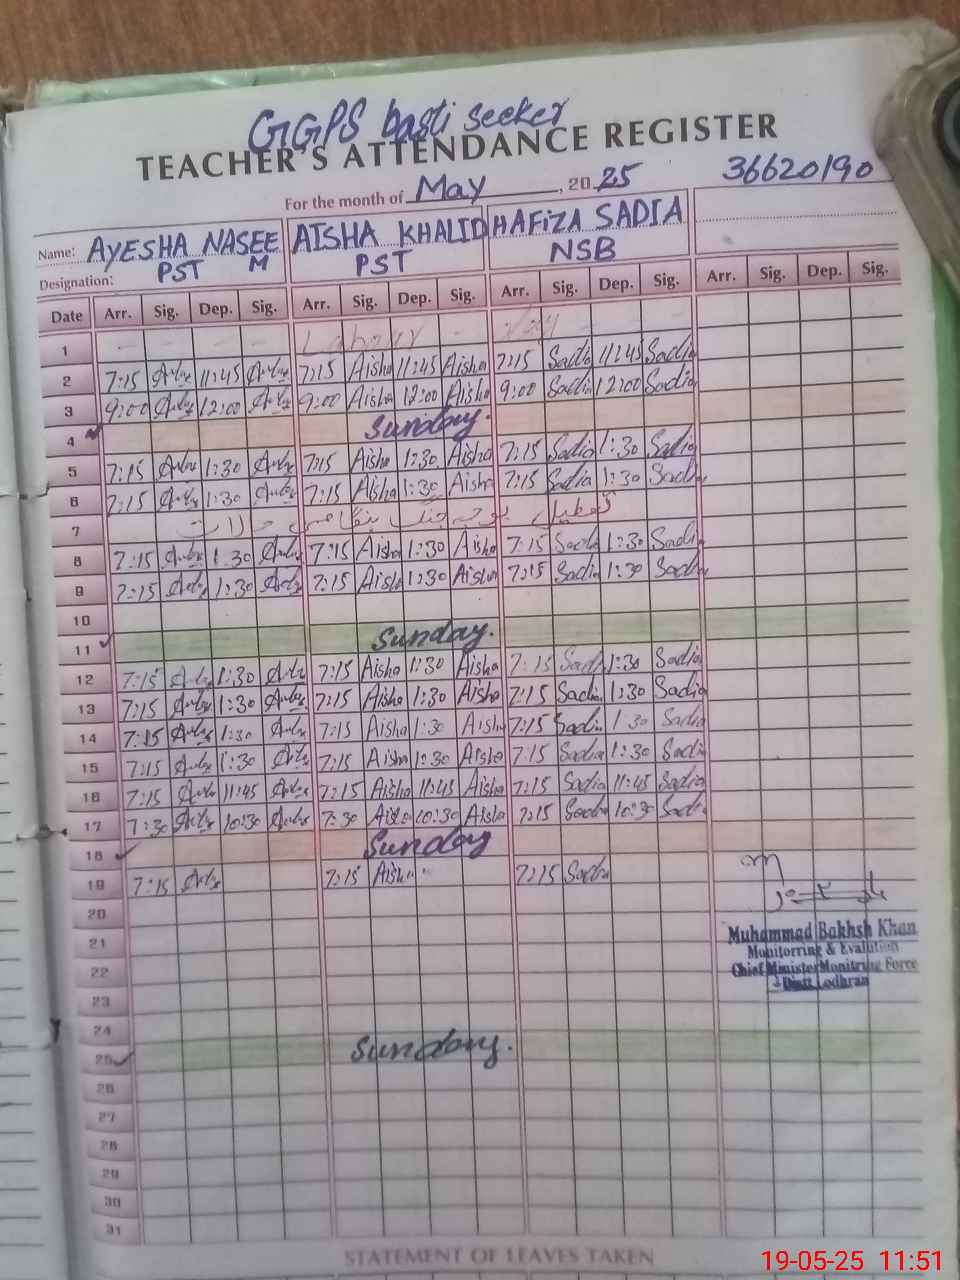 GGPS basti seeker
TEACHER'S ATTENDANCE REGISTER
For the month of May, 2025 36620190
Name: AYESHA NASEEM AISHA KHALID HAFIZA SADIA
Designation: PST PST NSB
Date Arr. Sig. Dep. Sig. Arr. Sig. Dep. Sig. Arr. Sig. Dep. Sig. Arr. Sig. Dep. Sig.
1 - - - Labour - Day - - -
2 7:15 11:45 7:15 Aisha 11:45 Aisha 7:15 Sadia 11:45 Sadia
3 9:00 12:00 9:00 Aisha 12:00 Aisha 9:00 Sadia 12:00 Sadia
4 Sunday.
5 7:15 1:30 7:15 Aisha 1:30 Aisha 7:15 Sadia 1:30 Sadia
6 7:15 1:30 7:15 Aisha 1:30 Aisha 7:15 Sadia 1:30 Sadia
7 تعطیل بوجہ جنگ حالات
8 7:15 1:30 7:15 Aisha 1:30 Aisha 7:15 Sadia 1:30 Sadia
9 7:15 1:30 7:15 Aisha 1:30 Aisha 7:15 Sadia 1:30 Sadia
10
11 Sunday.
12 7:15 1:30 7:15 Aisha 1:30 Aisha 7:15 Sadia 1:30 Sadia
13 7:15 1:30 7:15 Aisha 1:30 Aisha 7:15 Sadia 1:30 Sadia
14 7:15 1:30 7:15 Aisha 1:30 Aisha 7:15 Sadia 1:30 Sadia
15 7:15 1:30 7:15 Aisha 1:30 Aisha 7:15 Sadia 1:30 Sadia
16 7:15 11:45 7:15 Aisha 11:45 Aisha 7:15 Sadia 11:45 Sadia
17 7:30 10:30 7:30 Aisha 10:30 Aisha 7:15 Sadia 10:30 Sadia
18 Sunday
19 7:15 7:15 Aisha 7:15 Sadia
20
21
Muhammad Bakhsh Khan
22
Monitorring & Evalution
Chief Minister Monitring Force
Distt Lodhran
23
24
25 Sunday.
26
27
28
29
30
31
STATEMENT OF LEAVES TAKEN
19-05-25 11:51